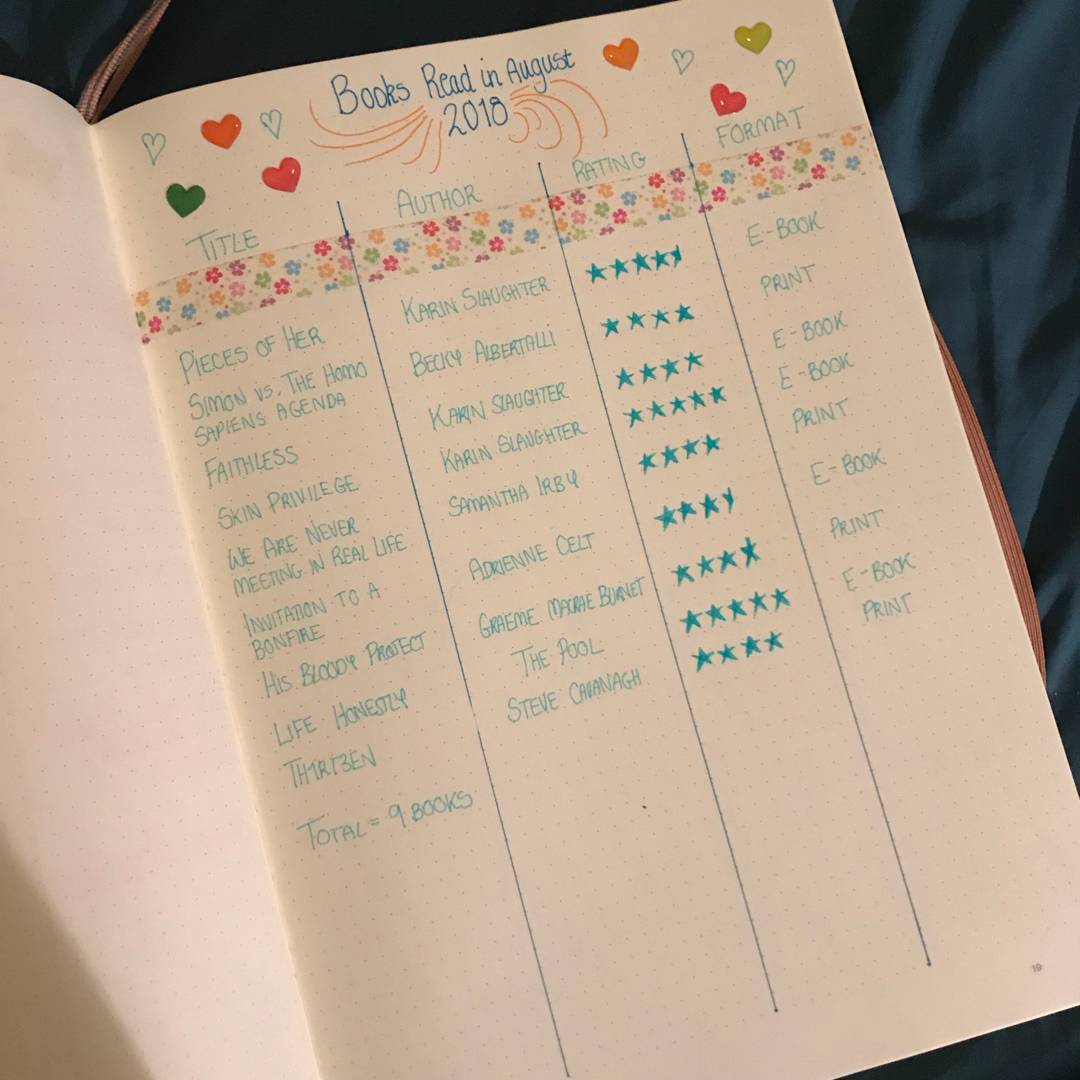 Books Read in August
2018
TITLE
AUTHOR
RATING
FORMAT
PIECES OF HER
KARIN SLAUGHTER
E-BOOK
SIMON VS. THE HOMO
SAPIENS AGENDA
BECKY ALBERTALLI
PRINT
FAITHLESS
KARIN SLAUGHTER
E-BOOK
SKIN PRIVILEGE
KARIN SLAUGHTER
E-BOOK
WE ARE NEVER
MEETING IN REAL LIFE
SAMANTHA IRBY
PRINT
INVITATION TO A
BONFIRE
ADRIENNE CELT
E-BOOK
HIS BLOODY PROJECT
GRAEME MACRAE BURNET
PRINT
LIFE HONESTLY
THE POOL
E-BOOK
TH1RT3EN
STEVE CAVANAGH
PRINT
TOTAL = 9 BOOKS
19